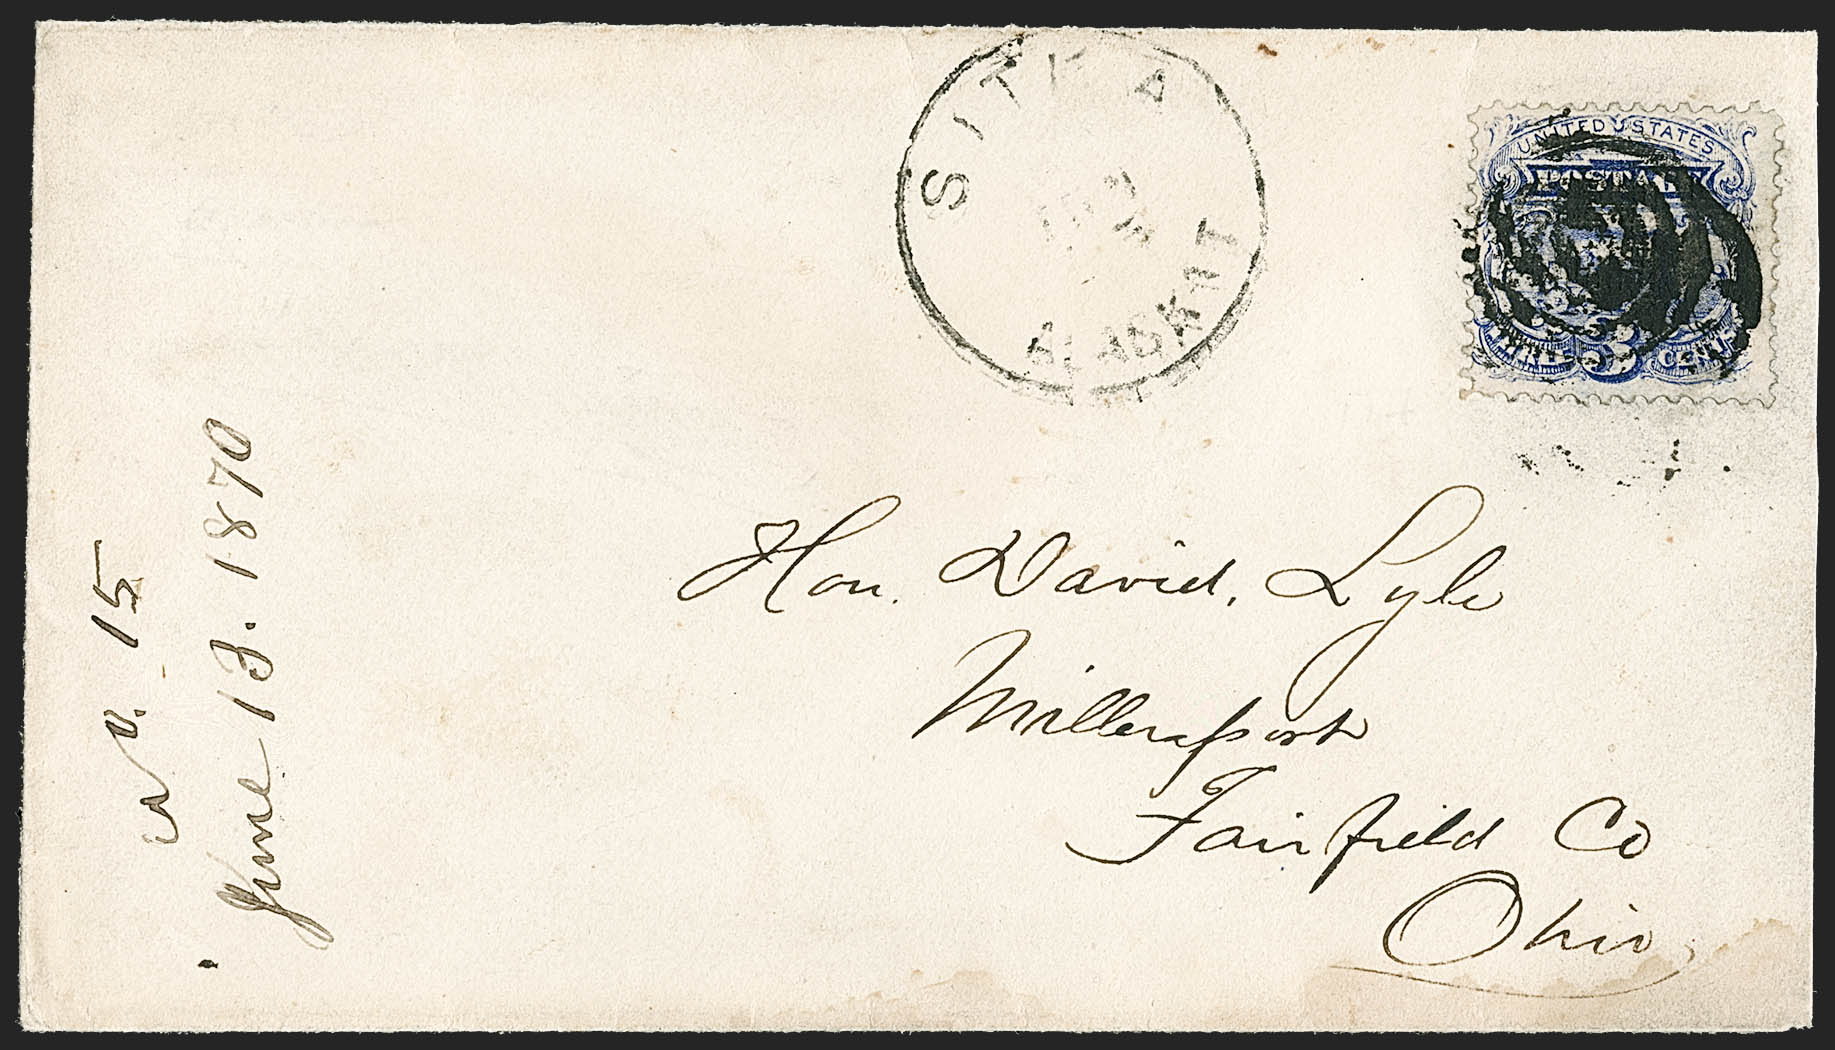 SITKA
ALASKA T
UNITED STATES
POSTAGE
3
CENTS
Hon. David, Lyle
Millersport
Fairfield Co
Ohio
No. 15
June 13. 1870